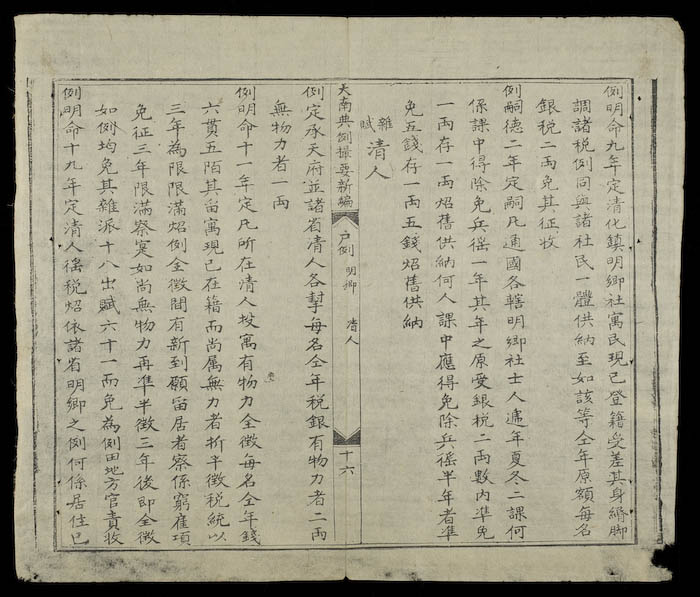 例明命九年定清化鎮明鄉社寓民現已登籍受差其身緡脚
調諸税例同與諸社民一體供納至如該等仝年原額每名
銀税二兩免其征收
例嗣德二年定嗣凡通國各轄明鄉社士人遞年夏冬二課何
係課中得除免兵徭一年其年之原受銀税二兩數内準免
一兩存一兩炤舊供納何人課中應得免除兵徭半年者準
免五錢存一兩五錢炤舊供納
雜賦 清人
大南典例撮要新編 戸例 明鄉 清人 十六
例定承天府並諸省清人各幇每名仝年税銀有物力者二兩
無物力者一兩
例明命十一年定凡所在清人投寓有物力仝徵每名仝年錢
六貫五陌其留寓現已在籍而尚属無力者折半徵税統以
三年為限限滿炤例仝徵間有新到願留居者察係窮雇項
免征三年限滿察寔如尚無物力再準半徵三年後即仝徵
如例均免其雜派十八出賦六十一而免為例由地方官責收
例明命十九年定清人徭税炤依諸省明鄉之例何係居住已